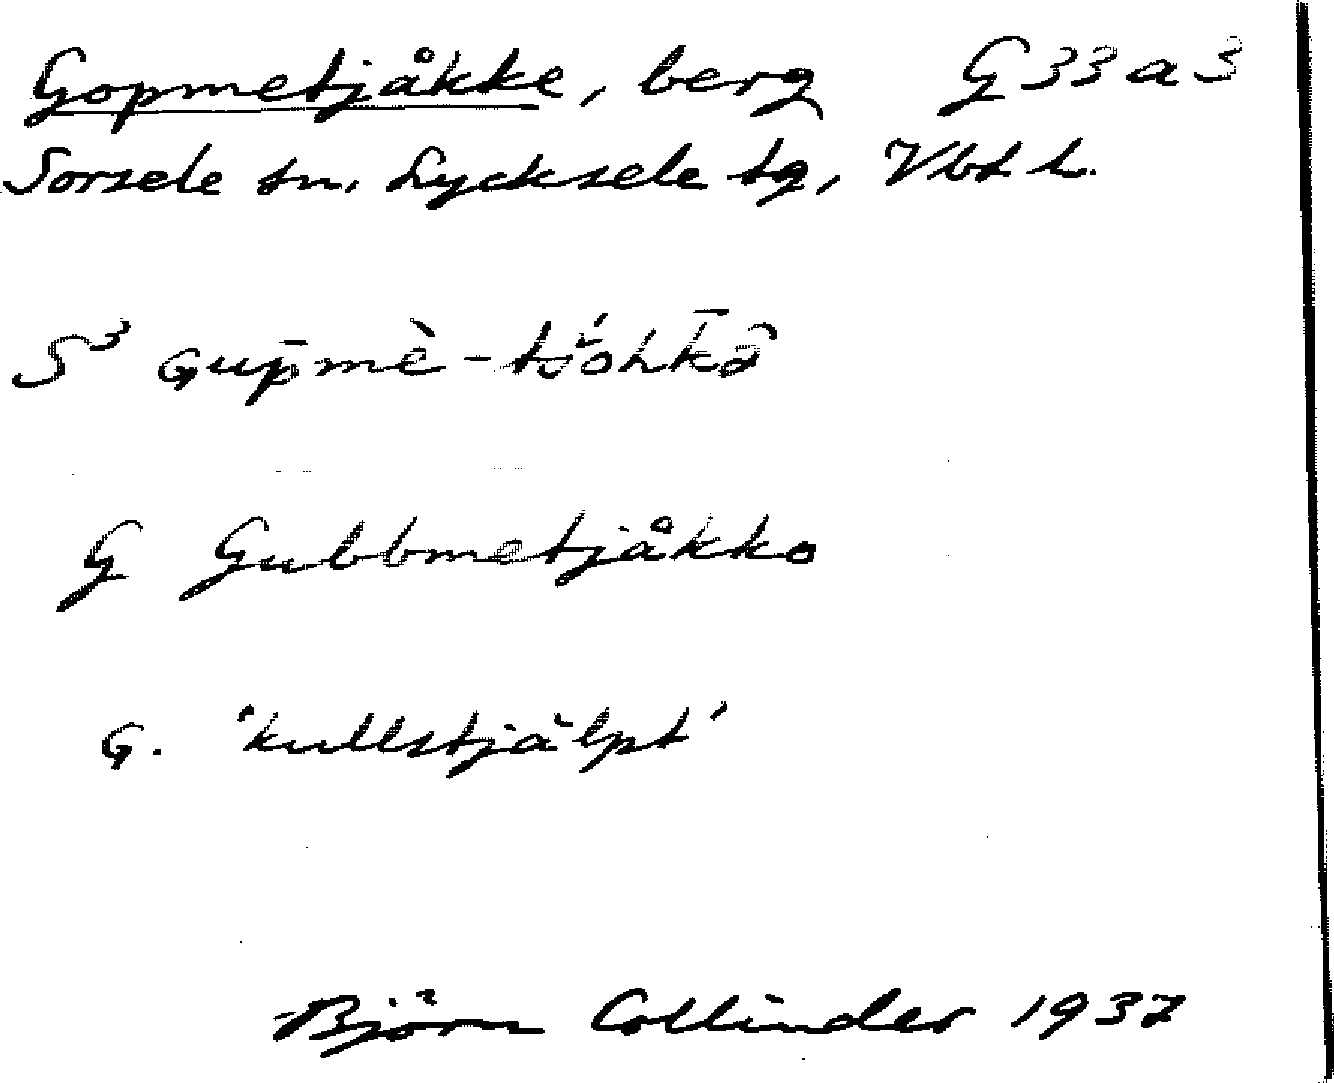 Gopmetjåkke, berg G 33 a 3
Sorsele sn. Lycksele tg, Vbt l.
S³ Gup̄mè - tšʹohk̄ȧ̂
G Gubbmetjåkko
G. 'kullstjälpt'
Björn Collinder 1937